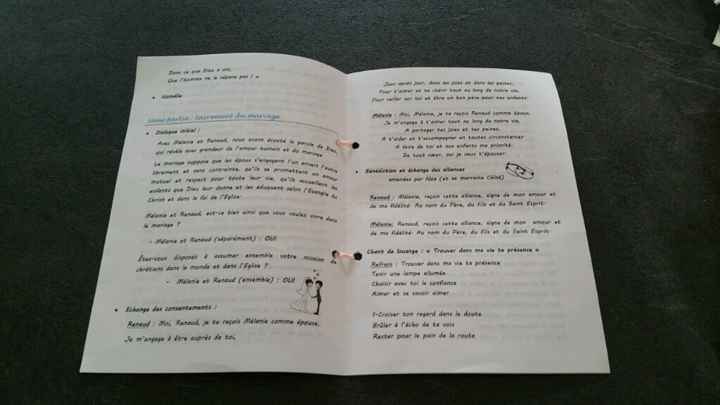 Donc ce que Dieu a uni,
Que l'homme ne le sépare pas ! »
• Homélie
2ème partie : Sacrement du mariage
• Dialogue initial :
Avec Mélanie et Renaud, nous avons écouté la parole de Dieu,
qui révèle avec grandeur de l'amour humain et du mariage.
Le mariage suppose que les époux s'engagent l'un envers l'autre
librement et sans contrainte, qu'ils se promettent un amour
mutuel et respect pour toute leur vie, qu'ils accueillent les
enfants que Dieu leur donne et les éduquent selon l'Evangile du
Christ et dans la foi de l'Eglise.
Mélanie et Renaud, est-ce bien ainsi que vous voulez vivre dans
le mariage ?
- Mélanie et Renaud (séparément) : OUI
Êtes-vous disposés à assumer ensemble votre mission de
chrétiens dans le monde et dans l'Eglise ?
- Mélanie et Renaud (ensemble) : OUI
• Echange des consentements :
Renaud : Moi, Renaud, je te reçois Mélanie comme épouse,
Je m'engage à être auprès de toi,
Jour après jour, dans les joies et dans les peines,
Pour t'aider et te chérir tout au long de notre vie,
Pour veiller sur toi et être un bon père pour nos enfants.
Mélanie : Moi, Mélanie, je te reçois Renaud comme époux.
Je m'engage à t'aimer tout au long de notre vie,
A partager tes joies et tes peines,
A t'aider et t'accompagner en toutes circonstances
A faire de toi et nos enfants ma priorité.
De tout cœur, oui je veux t'épouser.
• Bénédiction et échange des alliances
amenées par Noa (et sa marraine Céline)
Renaud : Mélanie, reçois cette alliance, signe de mon amour et
de ma fidélité. Au nom du Père, du Fils et du Saint Esprit.
Mélanie: Renaud, reçois cette alliance, signe de mon amour et
de ma fidélité. Au nom du Père, du Fils et du Saint Esprit.
Chant de louange : « Trouver dans ma vie ta présence »
Refrain : Trouver dans ma vie ta présence
Tenir une lampe allumée
Choisir avec toi la confiance
Aimer et se savoir aimer
1-Croiser ton regard dans le doute
Brûler à l'écho de ta voix
Rester pour le pain de la route